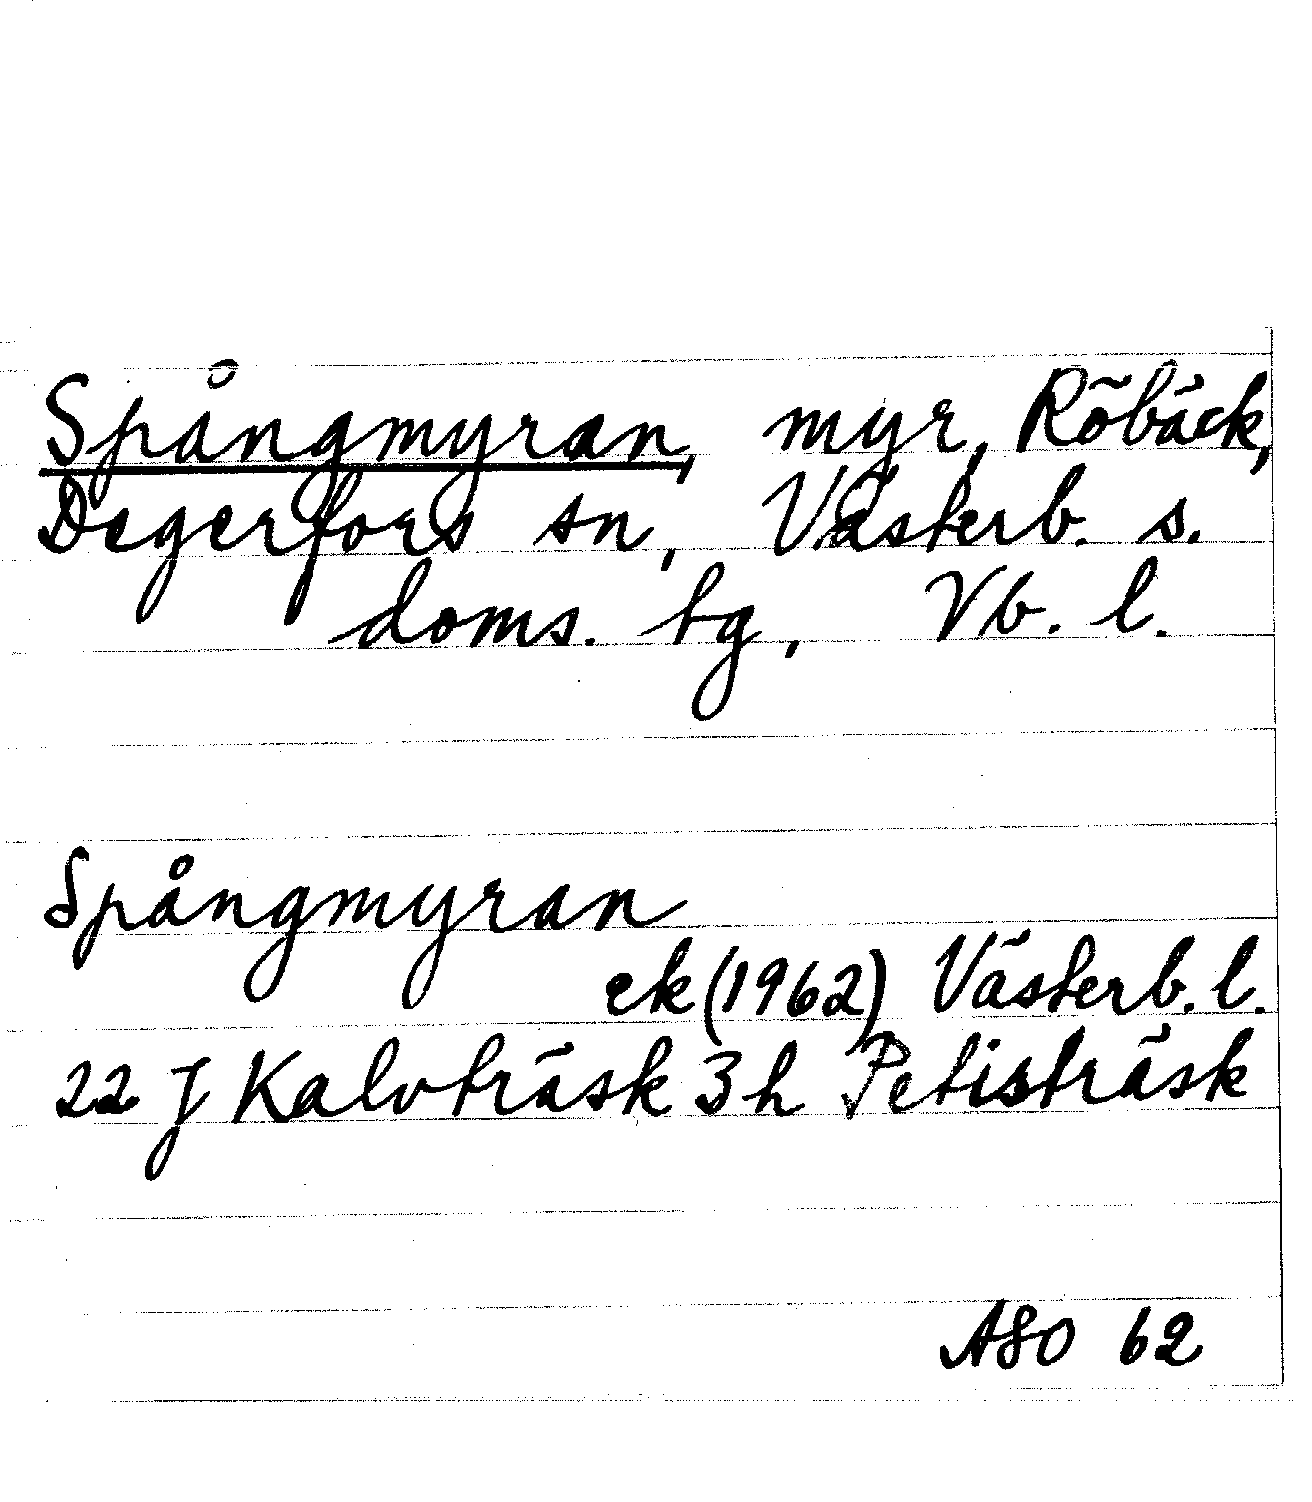 Spångmyran, myr, Röbäck,
Degerfors sn, Västerb. s.
doms. tg, Vb. l.
Spångmyran
ek (1962) Västerb. l.
22 J Kalvträsk 3 h Petisträsk
ASO 62